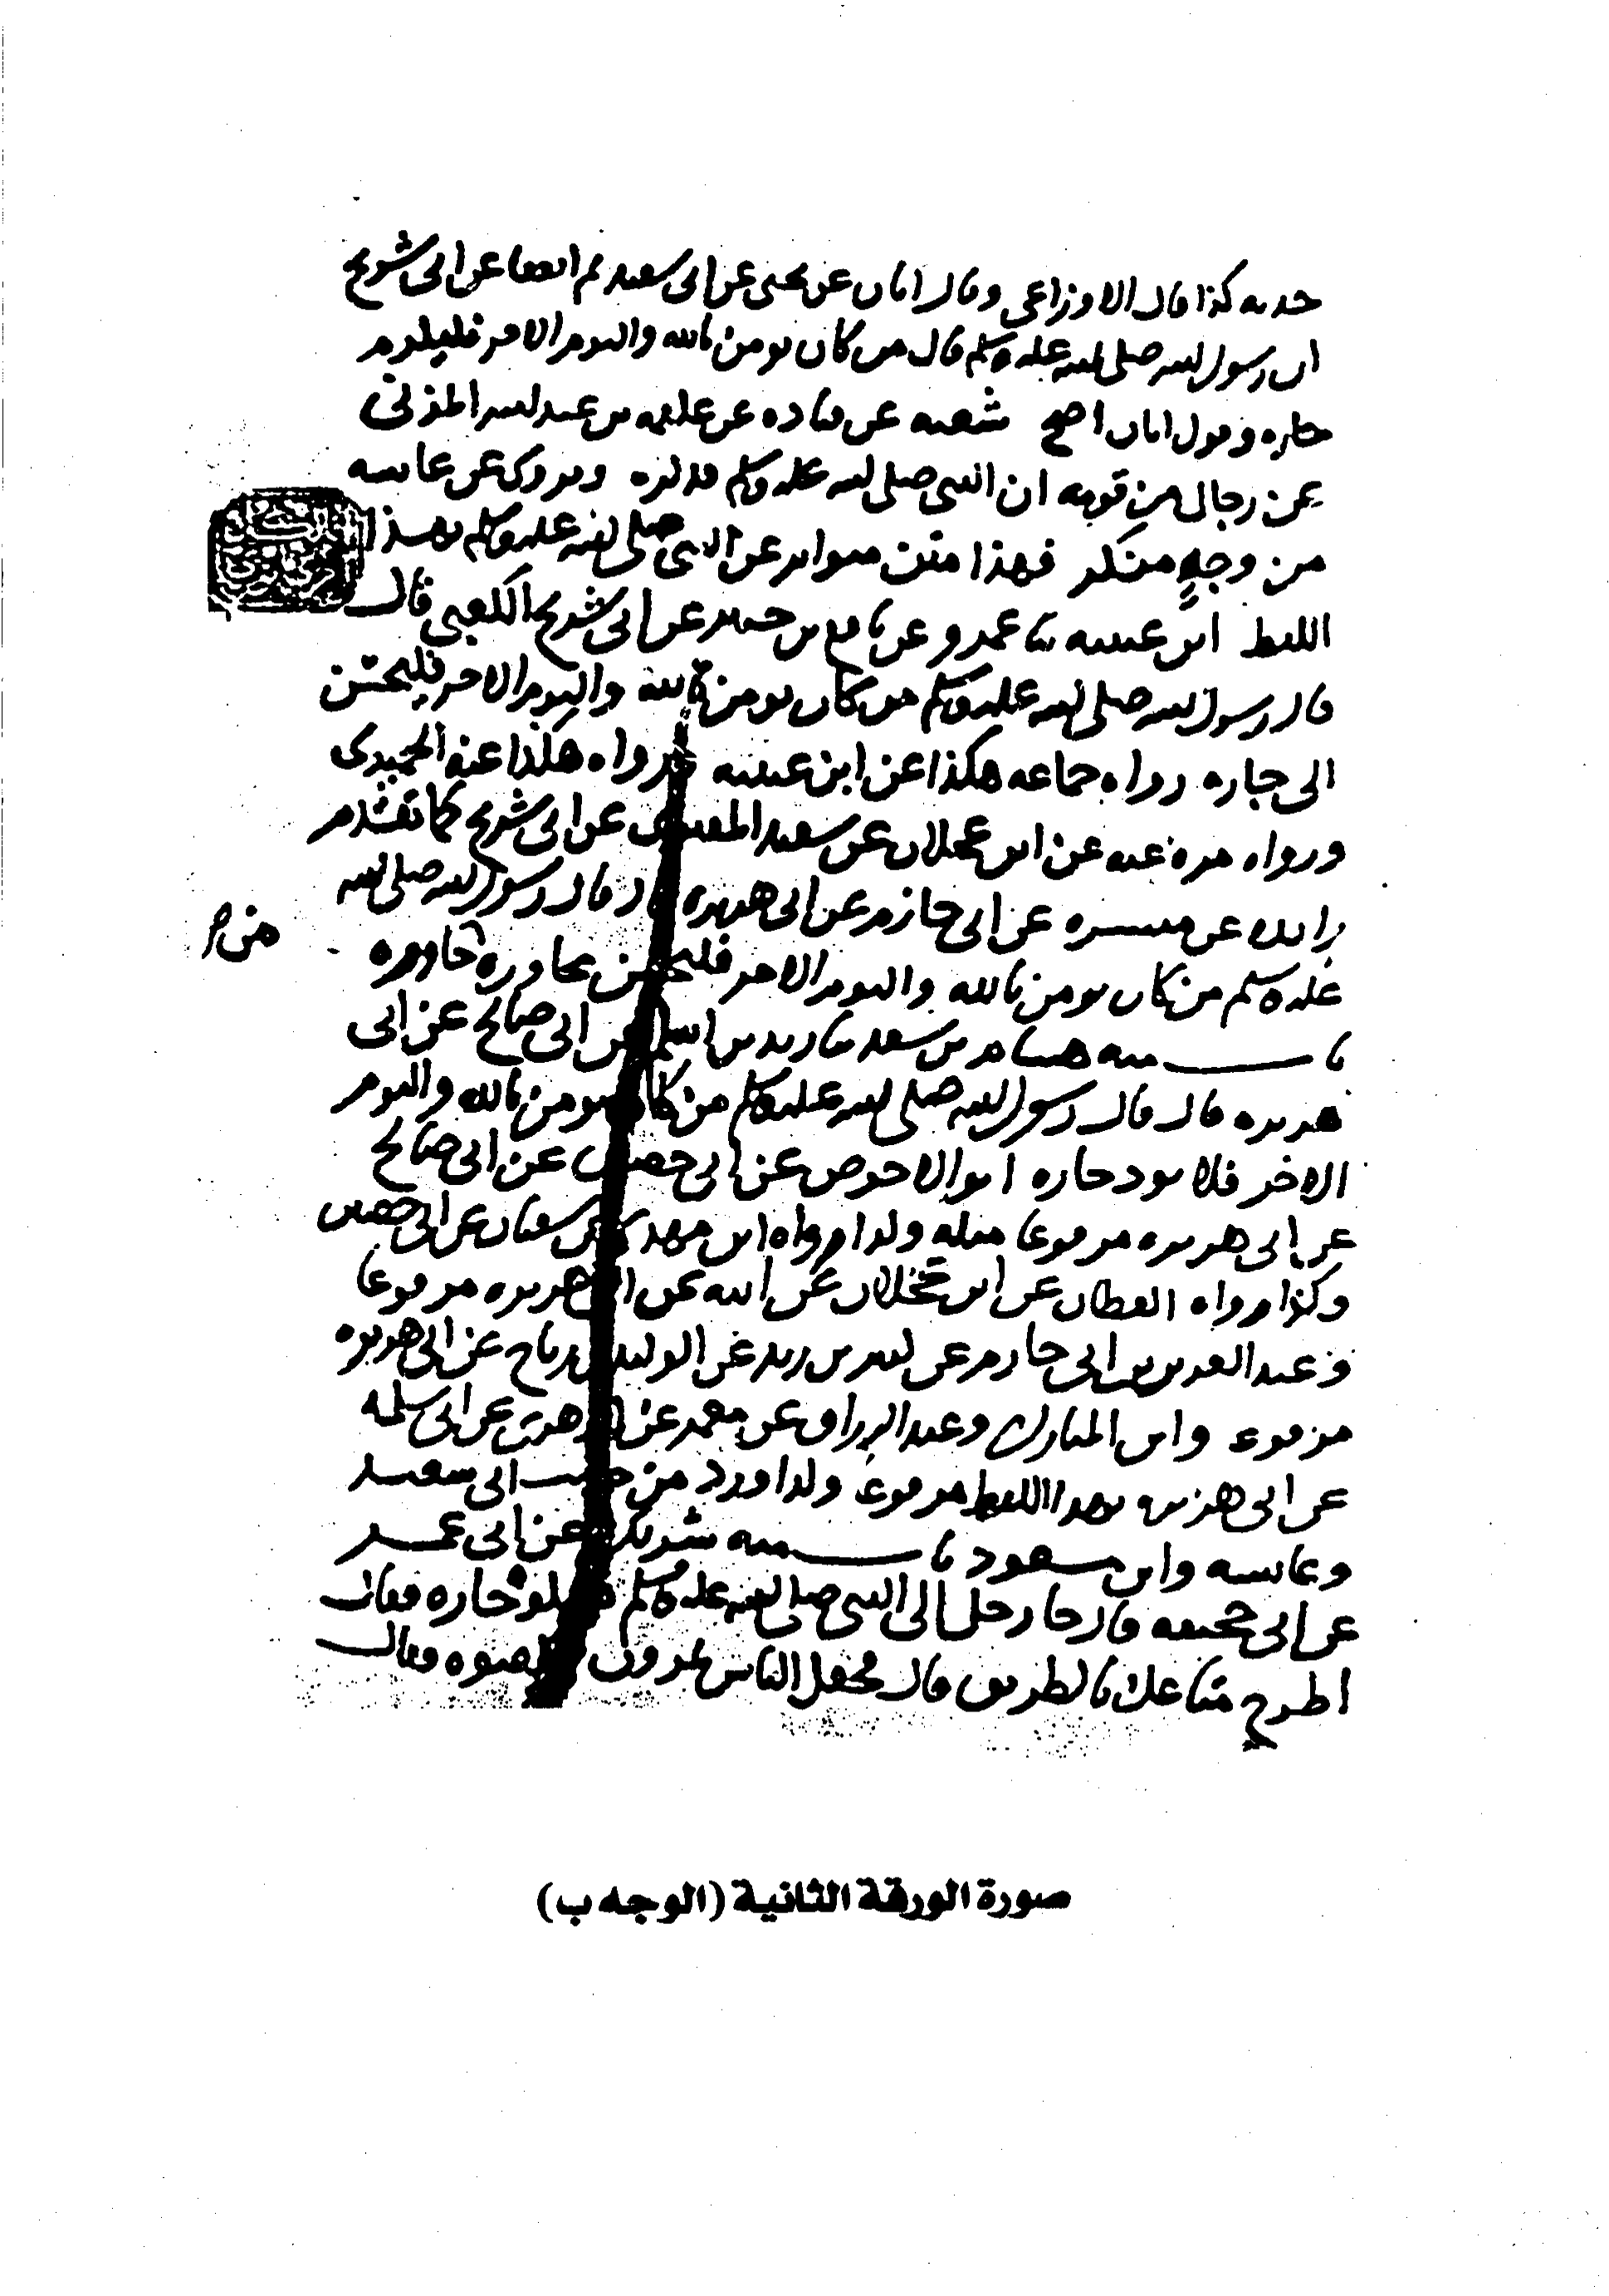 حدثه كذا قال الاوزاعي وقال ابان عن يحيى عن ابي سعيد ثم اتفقا عن ابي شريح
ان رسول الله صلى الله عليه وسلم قال من كان يومن بالله واليوم الاخر فليكرم
جاره وقول ابان اصح شعبه عن قتاده عن علقمه بن عبد الله المزني
عن رجال من قومه ان النبي صلى الله عليه وسلم فذكره ويروى عن عايشه
من وجه منكر فهذا متن متواتر عن النبي صلى الله عليه وسلم بهذا
اللفظ ابن عيينه ثنا عمرو عن نافع بن جبير عن ابي شريح الكعبي قال
قال رسول الله صلى الله عليه وسلم من كان يومن بالله واليوم الاخر فليحسن
الى جاره رواه جماعه هكذا عن ابن عيينه ورواه هكذا عنه الحميدي
ورواه مره عنه عن ابن عجلان عن سعيد المقبري عن ابي شريح كما تقدم
زايده عن ميسره عن ابي حازم عن ابي هريره قال قال رسول الله صلى الله
عليه وسلم من كان يومن بالله واليوم الاخر فليحسن مجاورة من جاوره
هشام بن سعد ثنا زيد بن اسلم عن ابي صالح عن ابي
هريره قال قال رسول الله صلى الله عليه وسلم من كان يومن بالله واليوم
الاخر فلا يوذ جاره ابو الاحوص عن ابي حصين عن ابي صالح
عن ابي هريره مرفوعا مثله وكذا رواه ابن مهدي عن سفيان عن ابي حصين
وكذا رواه القطان عن ابن عجلان عن ابيه عن ابي هريره مرفوعا
وعبد العزيز بن ابي حازم عن كثير بن زيد عن الوليد بن رباح عن ابي هريره
مرفوعا وابن المبارك وعبد الرزاق عن معمر عن الزهري عن ابي سلمه
عن ابي هريره بهذا اللفظ مرفوعا وكذا ورد من حديث ابي سعيد
وعايشه وابن مسعود شريك عن ابي عمر
عن ابي جحيفه قال جا رجل الى النبي صلى الله عليه وسلم يشكو جاره فقال
اطرح متاعك بالطريق قال فجعل الناس يمرون فقال
صورة الورقة الثانية (الوجه ب)